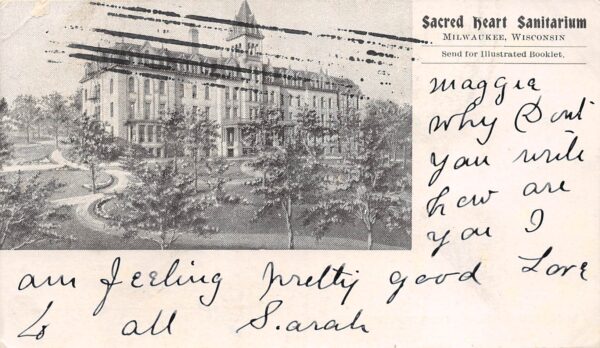 Sacred Heart Sanitarium
Milwaukee, Wisconsin
Send for Illustrated Booklet.
Maggie
Why Dont
you write
how are
you I
am feeling pretty good Love
to all Sarah